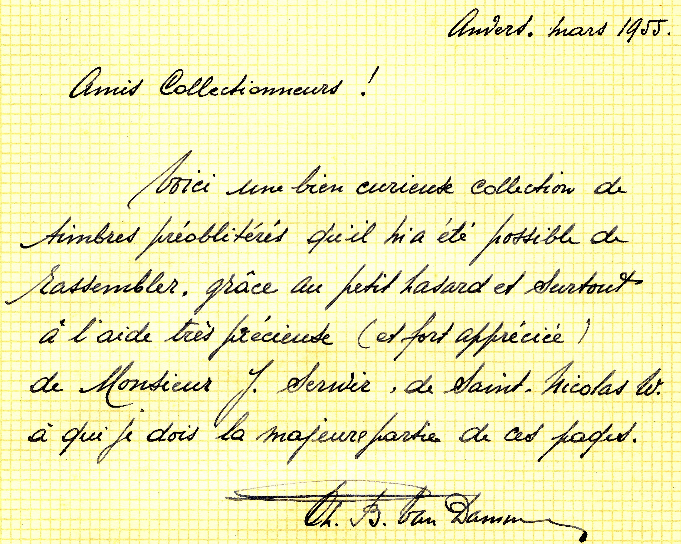 Anvers. mars 1955.
Amis Collectionneurs !
Voici une bien curieuse collection de
timbres préoblitérés qu'il m'a été possible de
rassembler. grâce au petit hasard et surtout
à l'aide très précieuse (et fort appréciée)
de Monsieur J. Servir, de Saint-Nicolas W.
à qui je dois la majeure partie de ces pages.
Ch. B. Van Damme